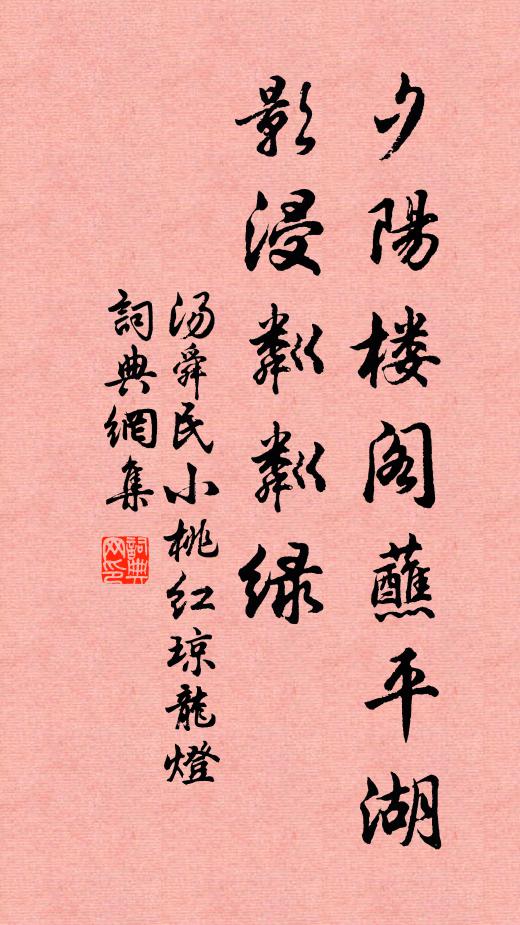 夕陽楼阁蘸平湖
影浸粼粼緑
汤舜民小桃红琼龍燈
詞典網集
詞典网印